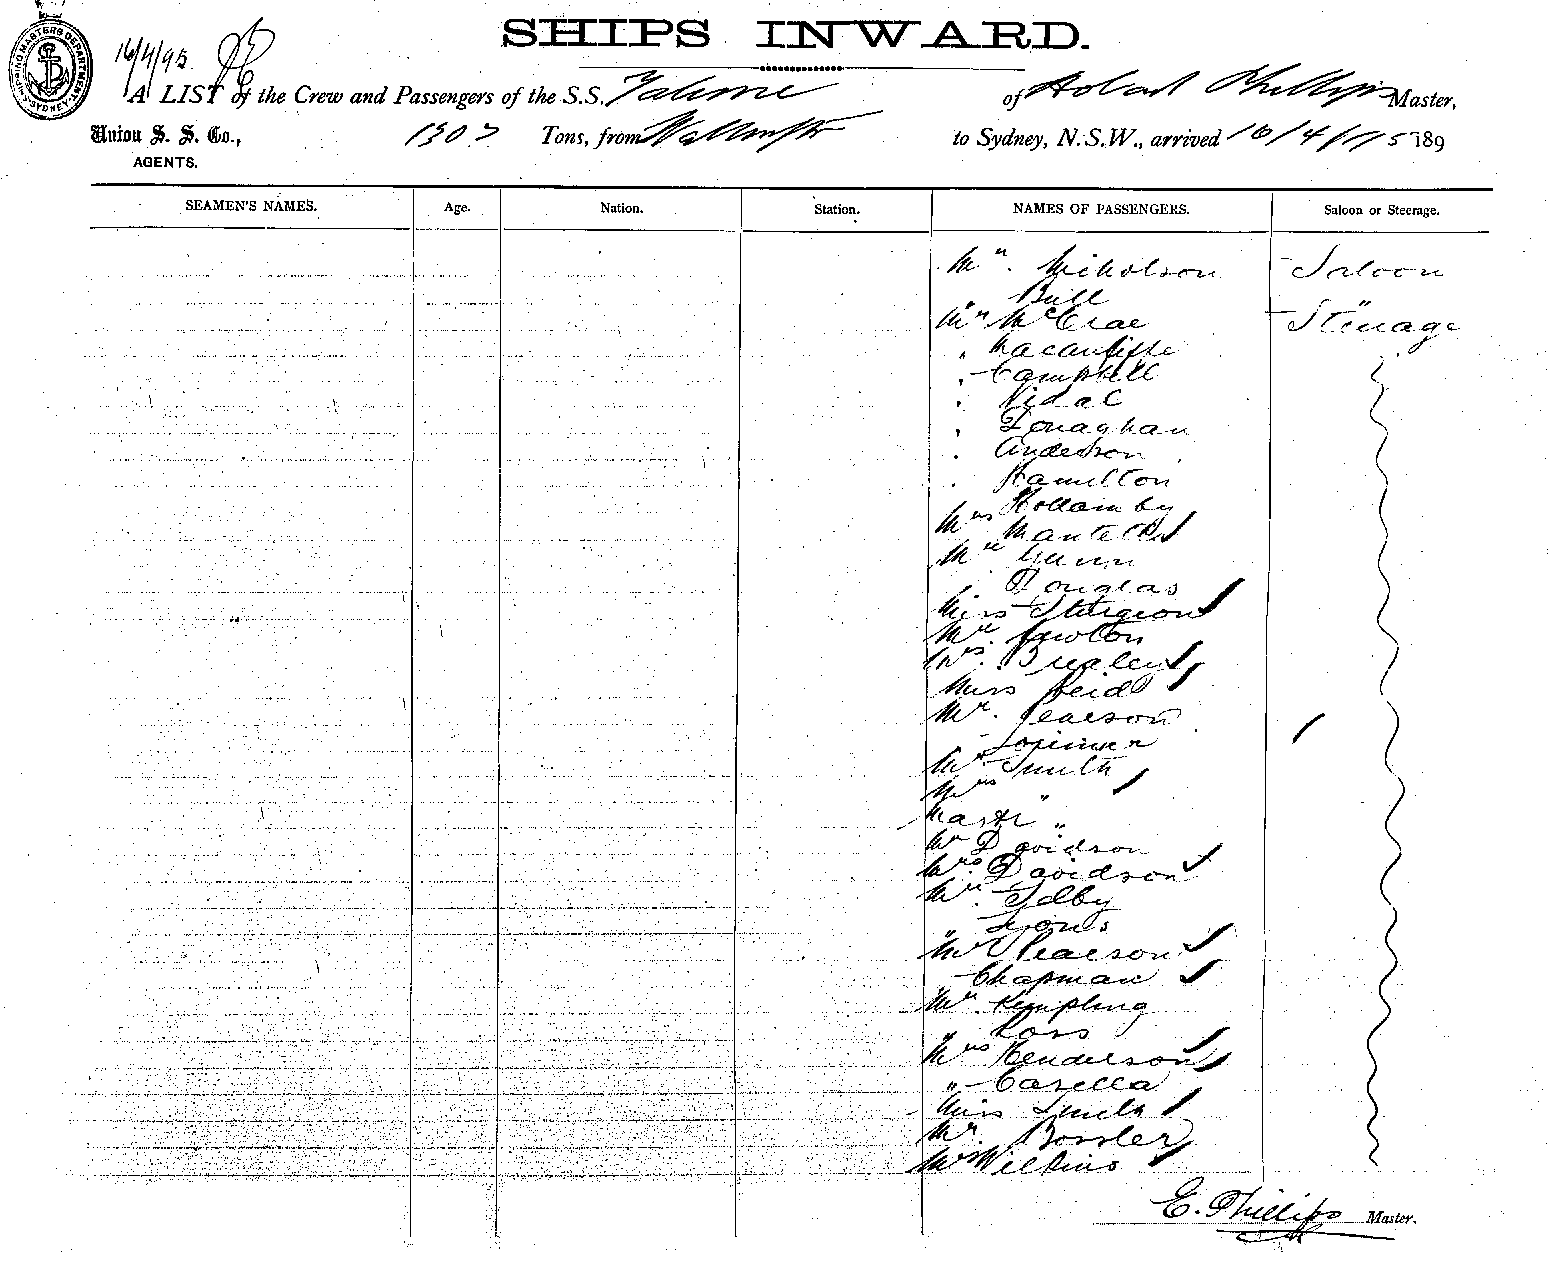 SHIPPING MASTERS DEPARTMENT SYDNEY
16/4/95
SHIPS INWARD.
A LIST of the Crew and Passengers of the S.S. of Hobart Phillips Master,
Union S. S. Co., 1307 Tons, from to Sydney, N.S.W., arrived 16/4/ 5 189
AGENTS.
SEAMEN'S NAMES. Age. Nation. Station. NAMES OF PASSENGERS. Saloon or Steerage.
Mr. Nicholson Saloon
" Bull "
Mr McCrae Steerage
" Macauliffe
" Campbell
" Vidal
" Donaghan
" Anderson
" Hamilton
Hollamby
Mrs Mantell
Mr Gunn
" Douglas
Miss Sturgeon
Mr. Newton
Mrs.
Miss Reid
Mr. Pearson
Lorimer
Mr Smith
Mrs "
Mastr "
Mr Davidson
Mrs. Davidson
Mr. Selby
" Lyons
Mrs Pearson
Chapman
Mr. Kempling
" Ross
Mrs Henderson
" Casella
Miss Smith
Mr. Bowler
Mrs Wilkins
E. Phillips Master.